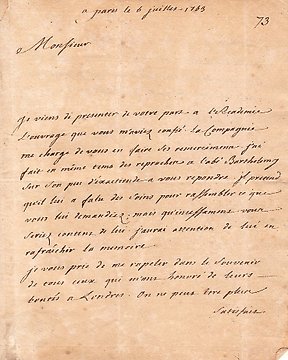 a paris le 6 juillet 1763
73
Monsieur
Je viens de presenter de votre part a l'Academie
L'ouvrage que vous m'aviez confié. La Compagnie
me charge de vous en faire ses remerciemens. J'ai
fait en même tems des reproches a l'abé Barthelemy
sur son peu d'exactitude a vous repondre. Il pretend
qu'il lui a falu des soins pour rassembler ce que
vous lui demandiez; mais qu'incessament vous
seriez content de lui. J'aurai attention de lui en
rafraichir la memoire.
Je vous prie de me rapeler dans le souvenir
de tous ceux qui m'ont honoré de leurs
bontés a Londres. On ne peut être plus
satisfait